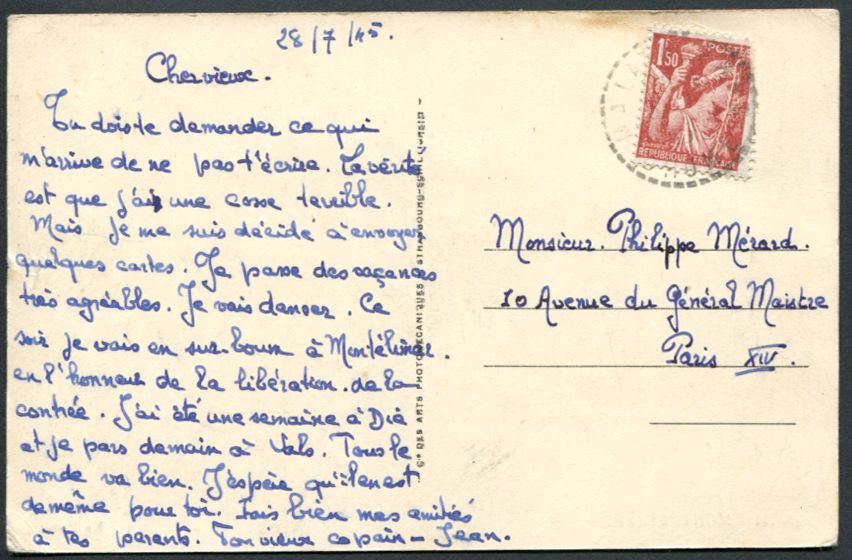 28/7/45.
Cher vieux.
Tu dois te demander ce qui
m'arrive de ne pas t'écrire. La vérité
est que j'ai une cosse terrible.
Mais je me suis décidé à envoyer
quelques cartes. Je passe des vacances
très agréables. Je vais danser. Ce
soir je vais en sur-boum à Montélimar.
en l'honneur de la libération de la
contrée. J'ai été une semaine à Die
et je pars demain à Vals. Tous le
monde va bien. J'espère qu'il en est
de même pour toi. Fais bien mes amitiés
à tes parents. Ton vieux copain - Jean.
Cie DES ARTS PHOTOMÉCANIQUES STRASBOURG-SCHILTIGHEIM
1F50
POSTES
RÉPUBLIQUE FRANÇAISE
Monsieur. Philippe Mérard.
10 Avenue du Général Maistre
Paris XIV.